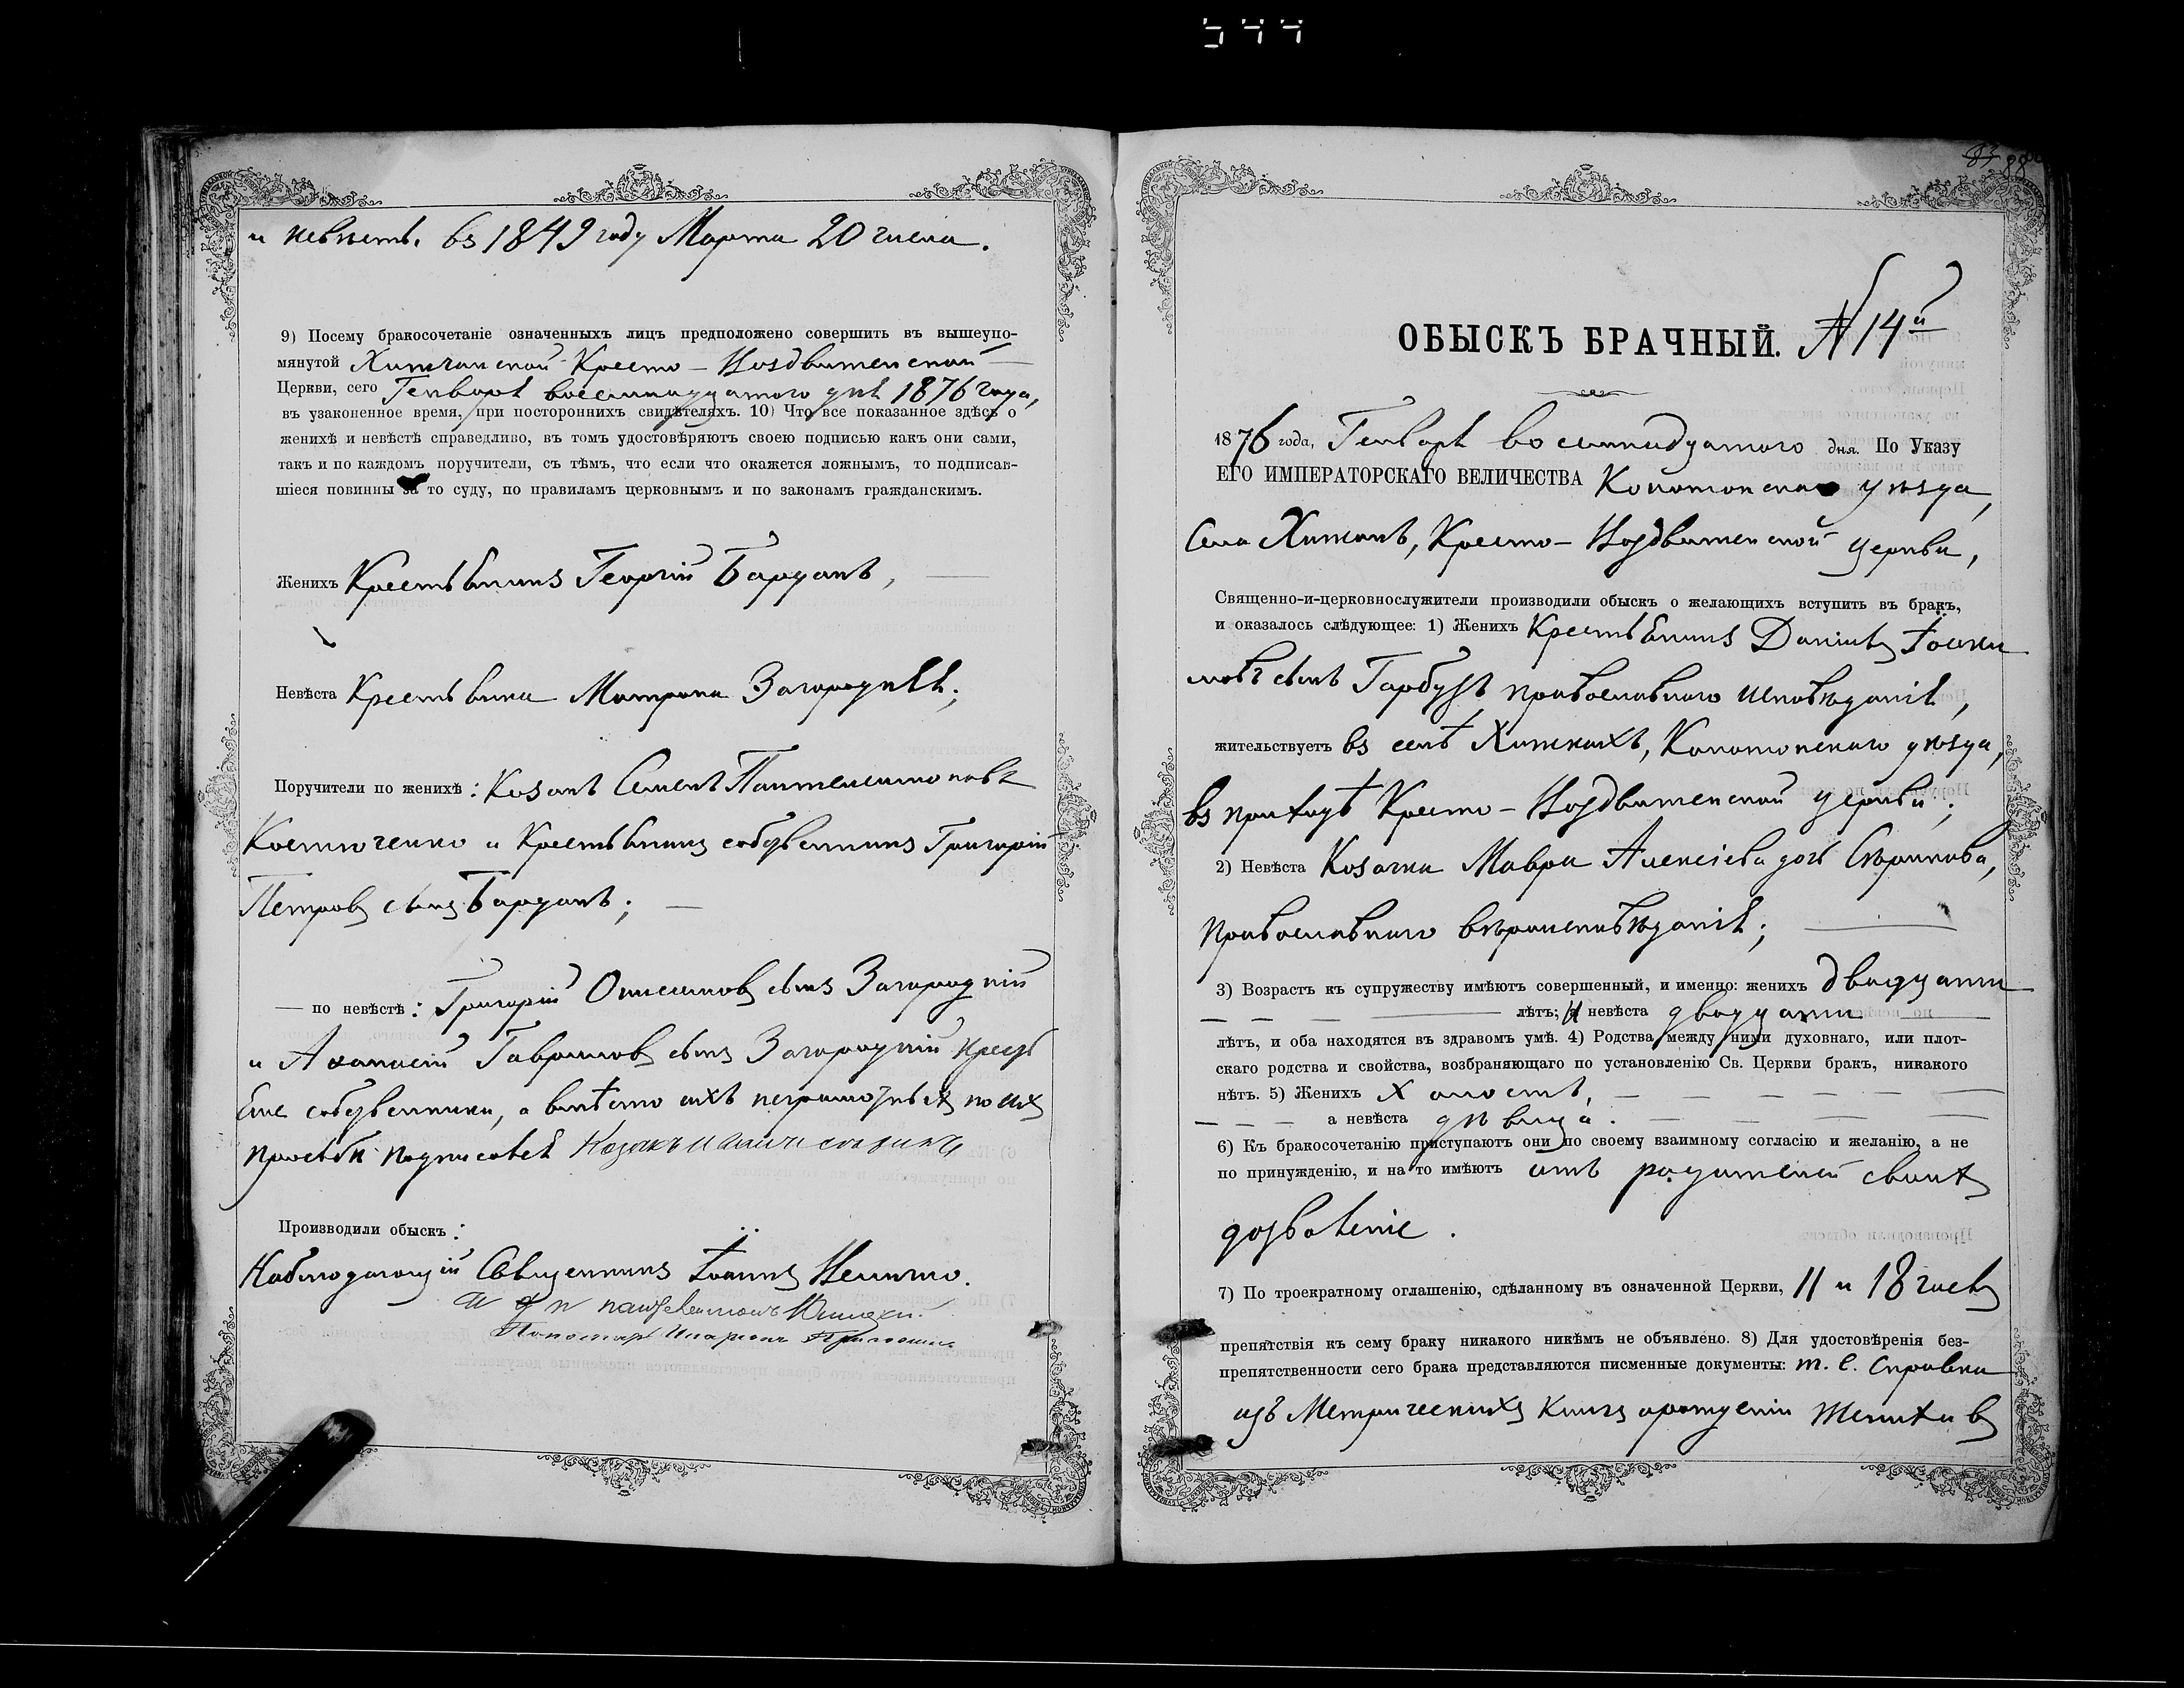 544
и невѣсты въ 1849 году Марта 20 числа.
9) Посему бракосочетаніе означенныхъ лицъ предположено совершить въ вышеупо-
мянутой Кресто-Воздвиженской
Церкви, сего Генваря восемнадцатого дня 1876 года,
въ узаконенное время, при постороннихъ свидѣтеляхъ. 10) Что все показанное здѣсь о
женихѣ и невѣстѣ справедливо, въ томъ удостовѣряютъ своею подписью какъ они сами,
такъ и по каждомъ поручители, съ тѣмъ, что если что окажется ложнымъ, то подписав-
шіеся повинны за то суду, по правиламъ церковнымъ и по законамъ гражданскимъ.
Женихъ Крестьянинъ Георгій Бардакъ,
Невѣста Крестьянка Матрона Загородняя;
Поручители по женихѣ: Козакъ Семенъ Пантелеимоновъ
Костюченко и Крестьянинъ собственникъ Григорій
Петровъ сынъ Бардакъ;
— по невѣстѣ: Григорій сынъ Загородній
и Аѳанасій Гавриловъ сынъ Загородній крестья
не собственники, а вмѣсто ихъ неграмотныхъ по ихъ
просьбѣ подписался Козакъ
Производили обыскъ:
Наблюдающій Священникъ Іоаннъ
Пономарь
83 88
ОБЫСКЪ БРАЧНЫЙ. № 14й
1876 года, Генваря восемнадцатого дня. По Указу
ЕГО ИМПЕРАТОРСКАГО ВЕЛИЧЕСТВА Конотопскаго уѣзда,
Села Хижокъ, Кресто-Воздвиженской церкви,
Священно-и-церковнослужители производили обыскъ о желающихъ вступить въ бракъ,
и оказалось слѣдующее: 1) Женихъ Крестьянинъ Даніилъ Іоаки
мовъ сынъ Гарбузъ православного исповѣданія,
жительствуетъ въ селѣ Хижкахъ, Конотопскаго уѣзда,
въ приходѣ Кресто-Воздвиженской церкви;
2) Невѣста Козачка Мавра Алексіева дочь Скрипкова,
православного вѣроисповѣданія;
3) Возрастъ къ супружеству имѣютъ совершенный, и именно: женихъ двадцати
лѣтъ; и невѣста двадцати
лѣтъ, и оба находятся въ здравомъ умѣ. 4) Родства между ними духовнаго, или плот-
скаго родства и свойства, возбраняющаго по установленію Св. Церкви бракъ, никакого
нѣтъ. 5) Женихъ Холостъ,
а невѣста дѣвица.
6) Къ бракосочетанію приступаютъ они по своему взаимному согласію и желанію, а не
по принужденію, и на то имѣютъ отъ родителей своихъ
дозволеніе.
7) По троекратному оглашенію, сдѣланному въ означенной Церкви, 11 и 18 числъ
препятствія къ сему браку никакого никѣмъ не объявлено. 8) Для удостовѣренія без-
препятственности сего брака представляются писменные документы: т. е. Справки
изъ Метрическихъ Книгъ о рожденіи Жениха въ